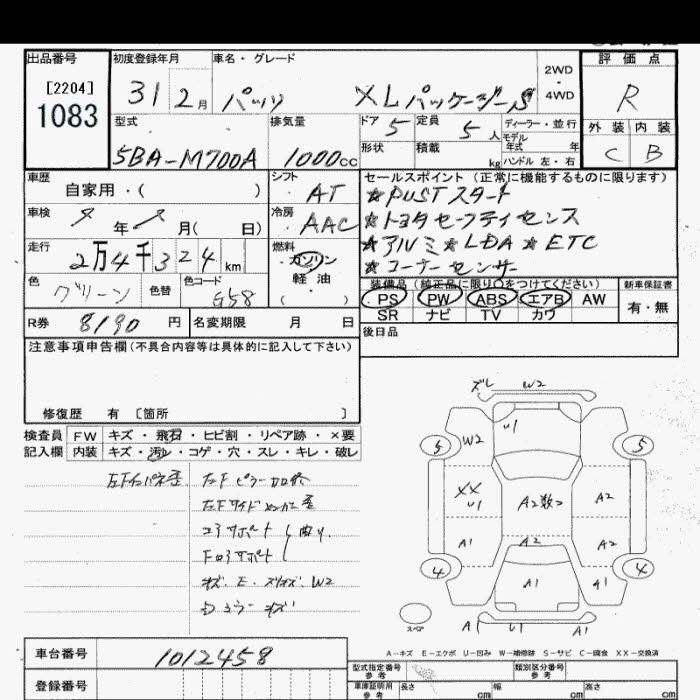 出品番号
[2204]
1083
初度登録年月
31 2月
車名・グレード
パッソ XLパッケージS
2WD
・
4WD
評価点
R
外装 内装
C B
型式
5BA-M700A
排気量
1000cc
ドア 5
定員 5人
形状
積載 kg
ディーラー・並行
モデル
年式 年
ハンドル 左・右
車歴
自家用・( )
シフト
AT
車検
年 月( 日)
冷房
AAC
走行
2万4千324km
燃料
ガソリン
軽油
( )
色
グリーン
色替
色コード
G58
セールスポイント (正常に機能するものに限ります)
★PUSTスタート
★トヨタセーフティセンス
★アルミ★LDA★ETC
★コーナーセンサー
装備品 (純正品に限り○をつけてください)
PS PW ABS エアB AW
SR ナビ TV カワ
新車保証書
有・無
R券 8190円
名変期限 月 日
後日品
注意事項申告欄(不具合内容等は具体的に記入して下さい)
修復歴 有 〔箇所 〕
検査員
記入欄
FW キズ・飛石・ヒビ割・リペア跡・×要
内装 キズ・汚レ・コゲ・穴・スレ・キレ・破レ
左Fインパネ歪
左Fピラー
左Fサイドメンバー歪
コアサポート 曲り
Fロアサポート
キズ・E・W2
ドアミラーキズ
ズレ W2
U1
5 W2 5
XX
U1
A2数2
A2
A1 A2 A2
4 A1 A1 4
スペア
A1 U1 A1
A-キズ E-エクボ U-凹み W-補修跡 S-サビ C-腐食 XX-交換済
車台番号
1012458
登録番号
型式指定番号
参考
類別区分番号
参考
車庫証明用
参考
長さ cm
幅 cm
高さ cm